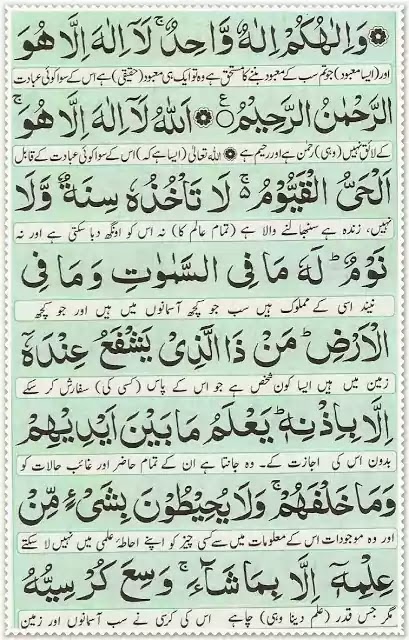 وَاِلٰـهُكُمْ اِلٰهٌ وَّاحِدٌ ۚ لَآ اِلٰهَ اِلَّا هُوَ
اور (ایسا معبود) جو تم سب کے معبود بننے کا مستحق ہے وہ تو ایک ہی معبود (حقیقی) ہے اس کے سوا کوئی عبادت
الرَّحْمٰنُ الرَّحِيْمُ ۝ اَللّٰهُ لَآ اِلٰهَ اِلَّا هُوَ ۚ
کے لائق نہیں (وہی) رحمٰن ہے اور رحیم ہے ۝ اللہ تعالیٰ (ایسا ہے کہ) اس کے سوا کوئی عبادت کے قابل
اَلْحَيُّ الْقَيُّوْمُ ۚ لَا تَاْخُذُهٗ سِنَةٌ وَّلَا
نہیں، زندہ ہے سنبھالنے والا ہے (تمام عالم کا) نہ اس کو اونگھ دبا سکتی ہے اور نہ
نَوْمٌ ؕ لَهٗ مَا فِي السَّمٰوٰتِ وَمَا فِي
نیند اسی کے مملوک ہیں سب جو کچھ آسمانوں میں ہیں اور جو کچھ
الْاَرْضِ ؕ مَنْ ذَا الَّذِيْ يَشْفَعُ عِنْدَهٗٓ
زمین میں ہیں ایسا کون شخص ہے جو اس کے پاس (کسی کی) سفارش کر سکے
اِلَّا بِاِذْنِهٖ ؕ يَعْلَمُ مَا بَيْنَ اَيْدِيْهِمْ
بدون اس کی اجازت کے۔ وہ جانتا ہے ان کے تمام حاضر اور غائب حالات کو
وَمَا خَلْفَهُمْ ۚ وَلَا يُحِيْطُوْنَ بِشَيْءٍ مِّنْ
اور وہ موجودات اس کے معلومات میں سے کسی چیز کو اپنے احاطۂ علمی میں نہیں لا سکتے
عِلْمِهٖٓ اِلَّا بِمَا شَآءَ ۚ وَسِعَ كُرْسِيُّهُ
مگر جس قدر (علم دینا وہی) چاہے اس کی کرسی نے سب آسمانوں اور زمین